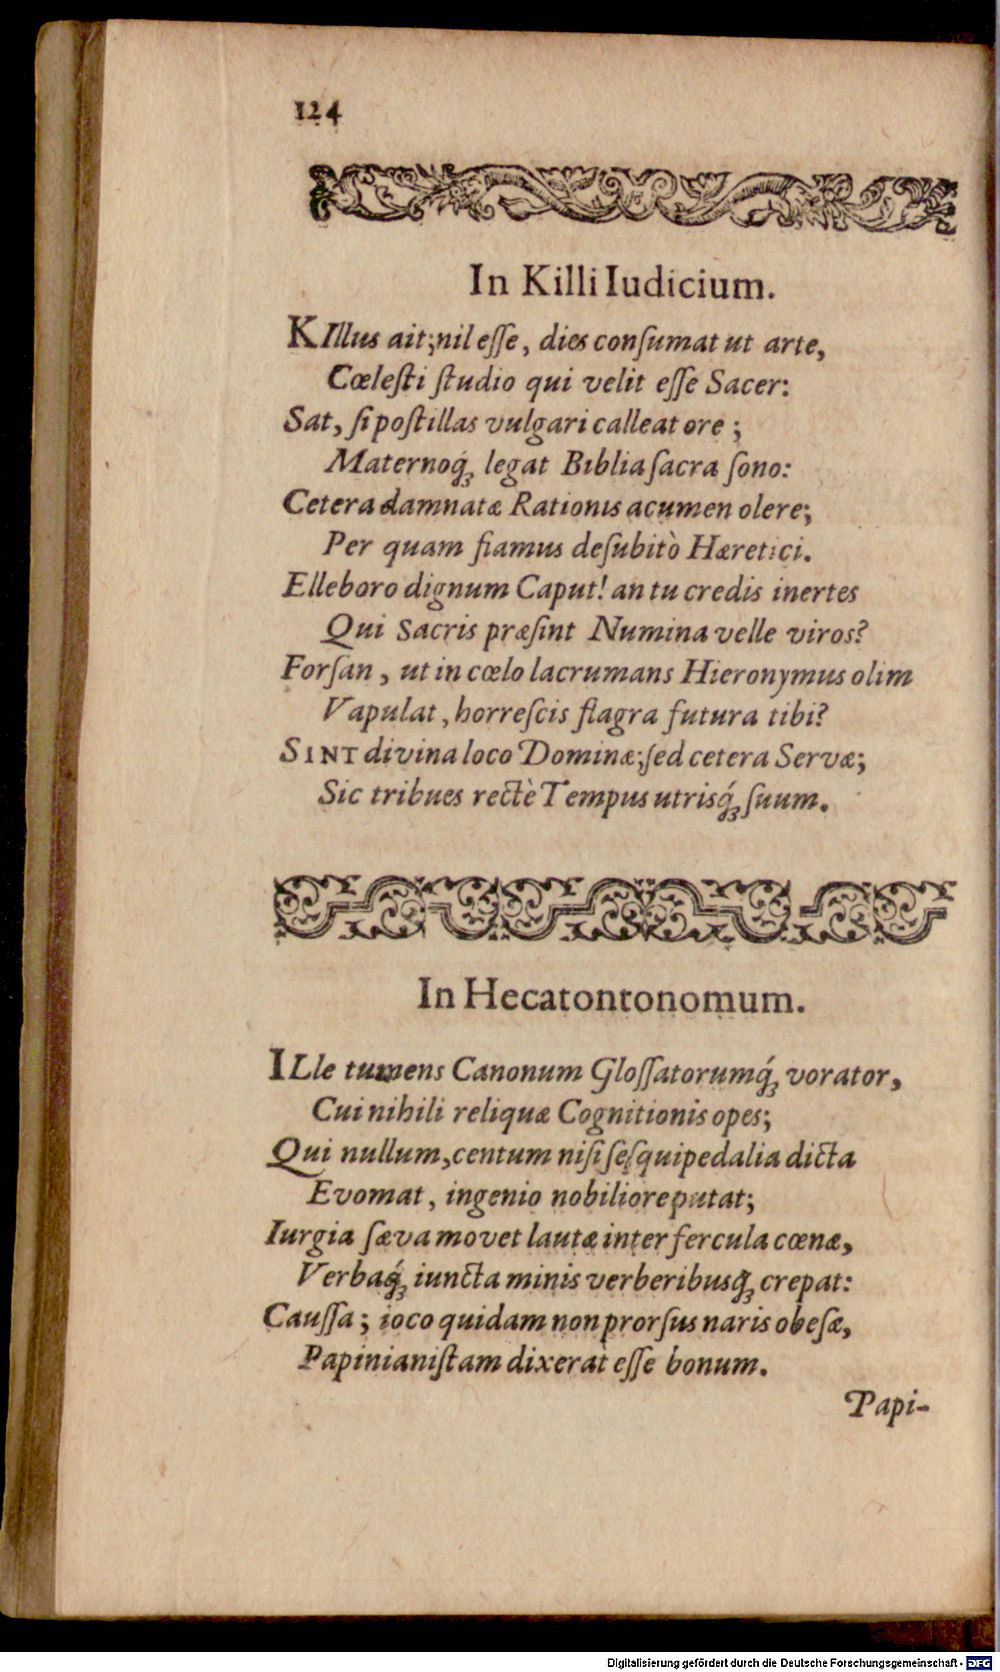 124
In Killi Iudicium.
KIllus ait; nil eſſe, dies conſumat ut arte,
Cœleſti ſtudio qui velit eſſe Sacer:
Sat, ſi poſtillas vulgari calleat ore;
Maternoq́ꝫ legat Biblia ſacra ſono:
Cetera damnatæ Rationis acumen olere;
Per quam fiamus deſubitò Hæretici.
Elleboro dignum Caput! an tu credis inertes
Qui Sacris præſint Numina velle viros?
Forſan, ut in cœlo lacrumans Hieronymus olim
Vapulat, horreſcis flagra futura tibi?
SINT divina loco Dominæ; ſed cetera Servæ;
Sic tribues rectè Tempus utrisq́ꝫ ſuum.
In Hecatontonomum.
ILle tumens Canonum Gloſſatorumq́ꝫ vorator,
Cui nihili reliquæ Cognitionis opes;
Qui nullum, centum niſi ſeſquipedalia dicta
Evomat, ingenio nobiliore putat;
Iurgia ſæva movet lautæ inter fercula cœnæ,
Verbaq́ꝫ iuncta minis verberibusqꝫ crepat:
Cauſſa; ioco quidam non prorſus naris obeſæ,
Papinianiſtam dixerat eſſe bonum.
Papi-
Digitalisierung gefördert durch die Deutsche Forschungsgemeinschaft - DFG